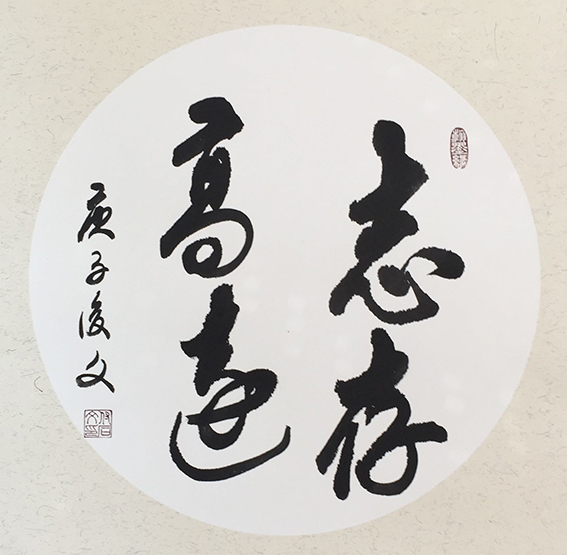 志存
高遠
庚子俊文